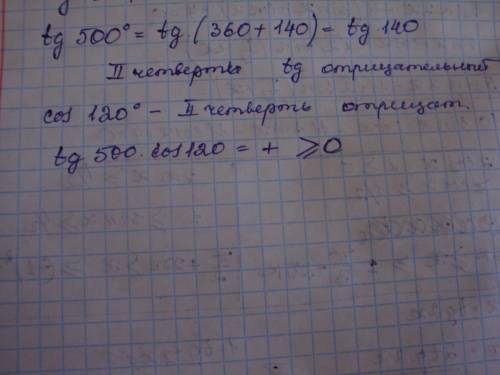 tg 500° = tg (360 + 140) = tg 140
II четверть tg отрицательный
cos 120° – II четверть отрицат.
tg 500 · cos 120 = + ⩾ 0